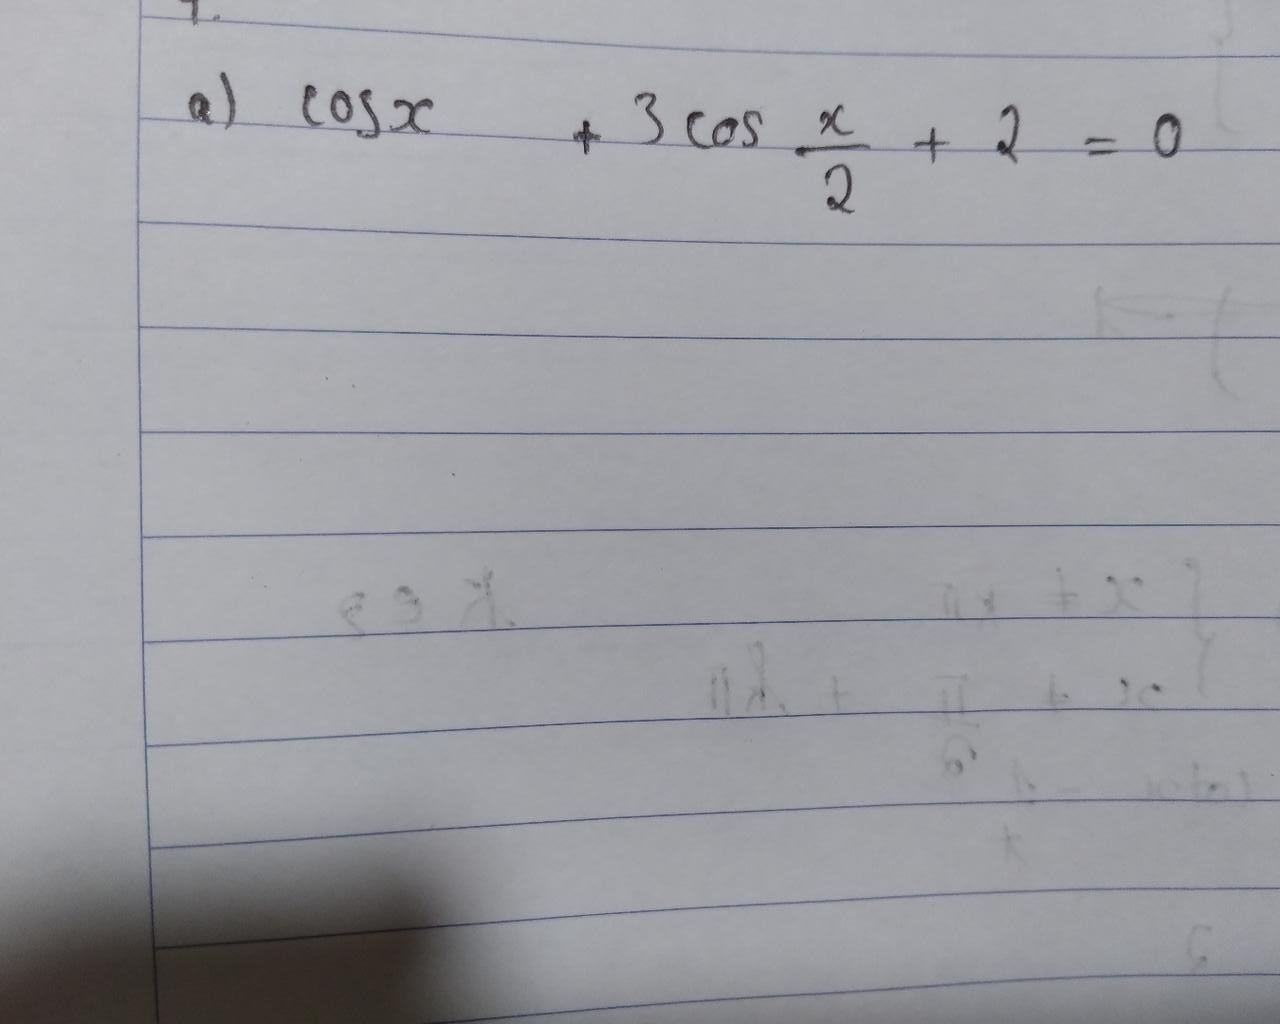 a) cos x + 3 cos x/2 + 2 = 0